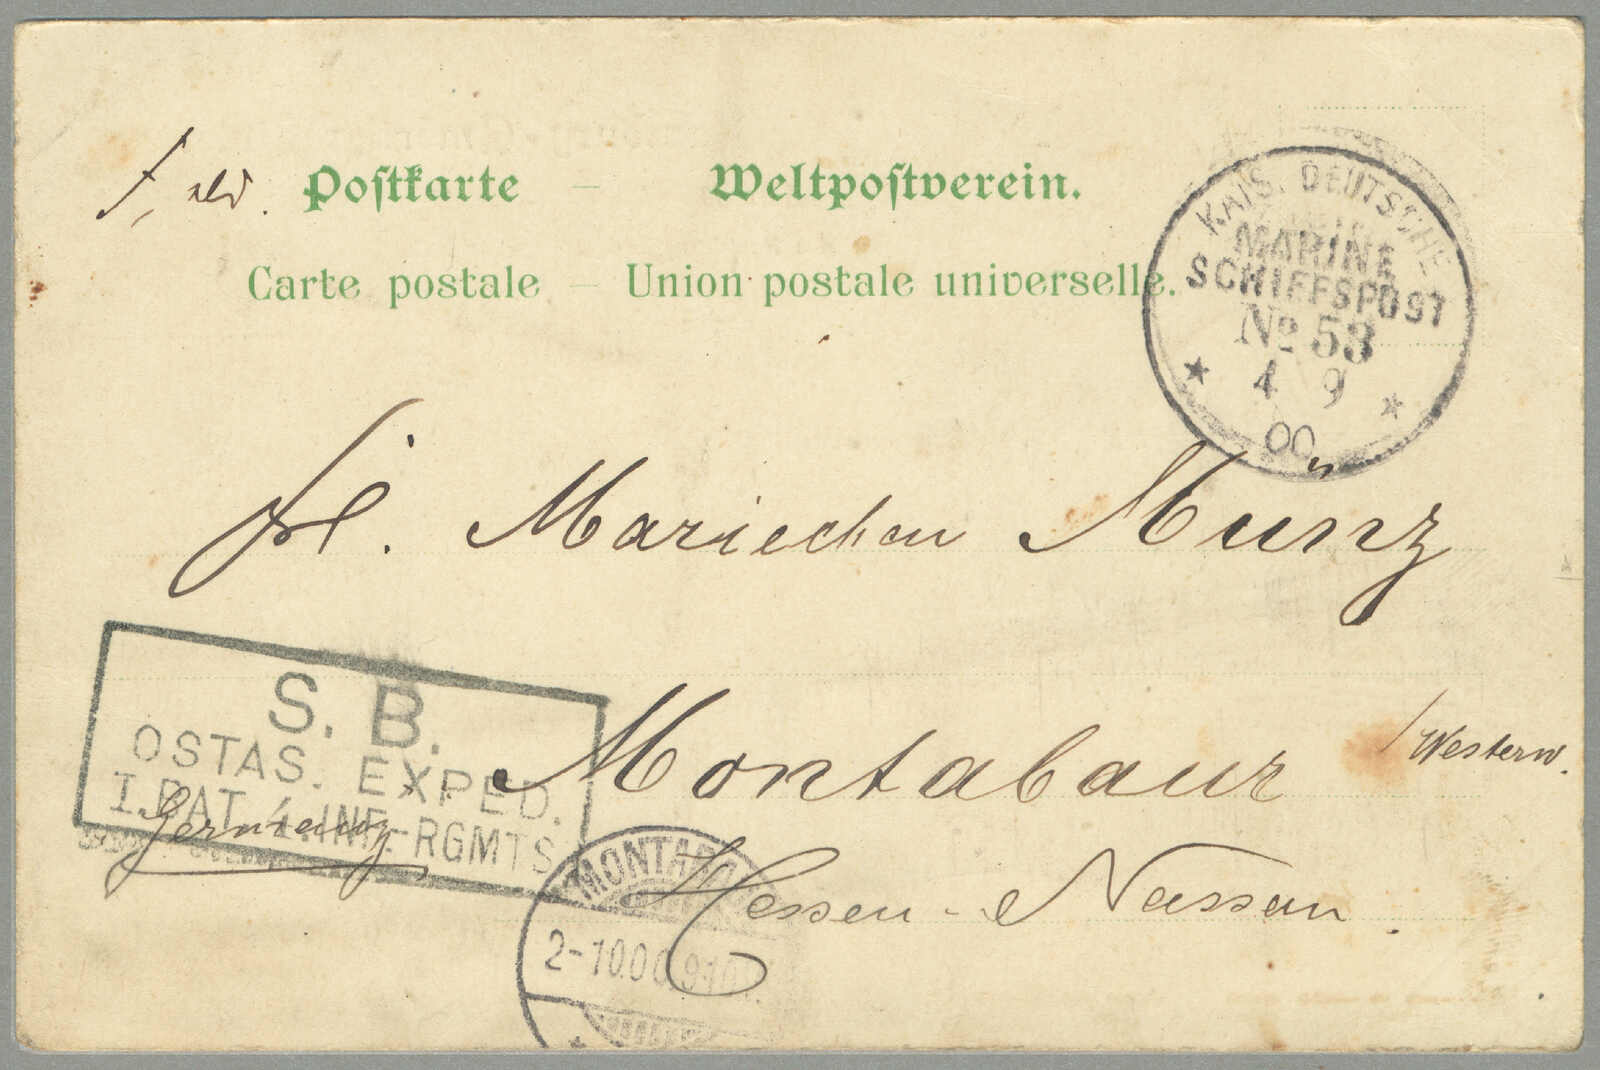 Postkarte – Weltpostverein.
Carte postale – Union postale universelle.
KAIS. DEUTSCHE
MARINE
SCHIFFSPOST
No 53
4 9
00
Frl. Mariechen Münz
Montabaur /Westerw.
Hessen-Nassau.
S. B.
OSTAS. EXPED.
I. BAT. 4. INF.-RGMTS
Germany
MONTABAUR
2-10.00 9-10V.